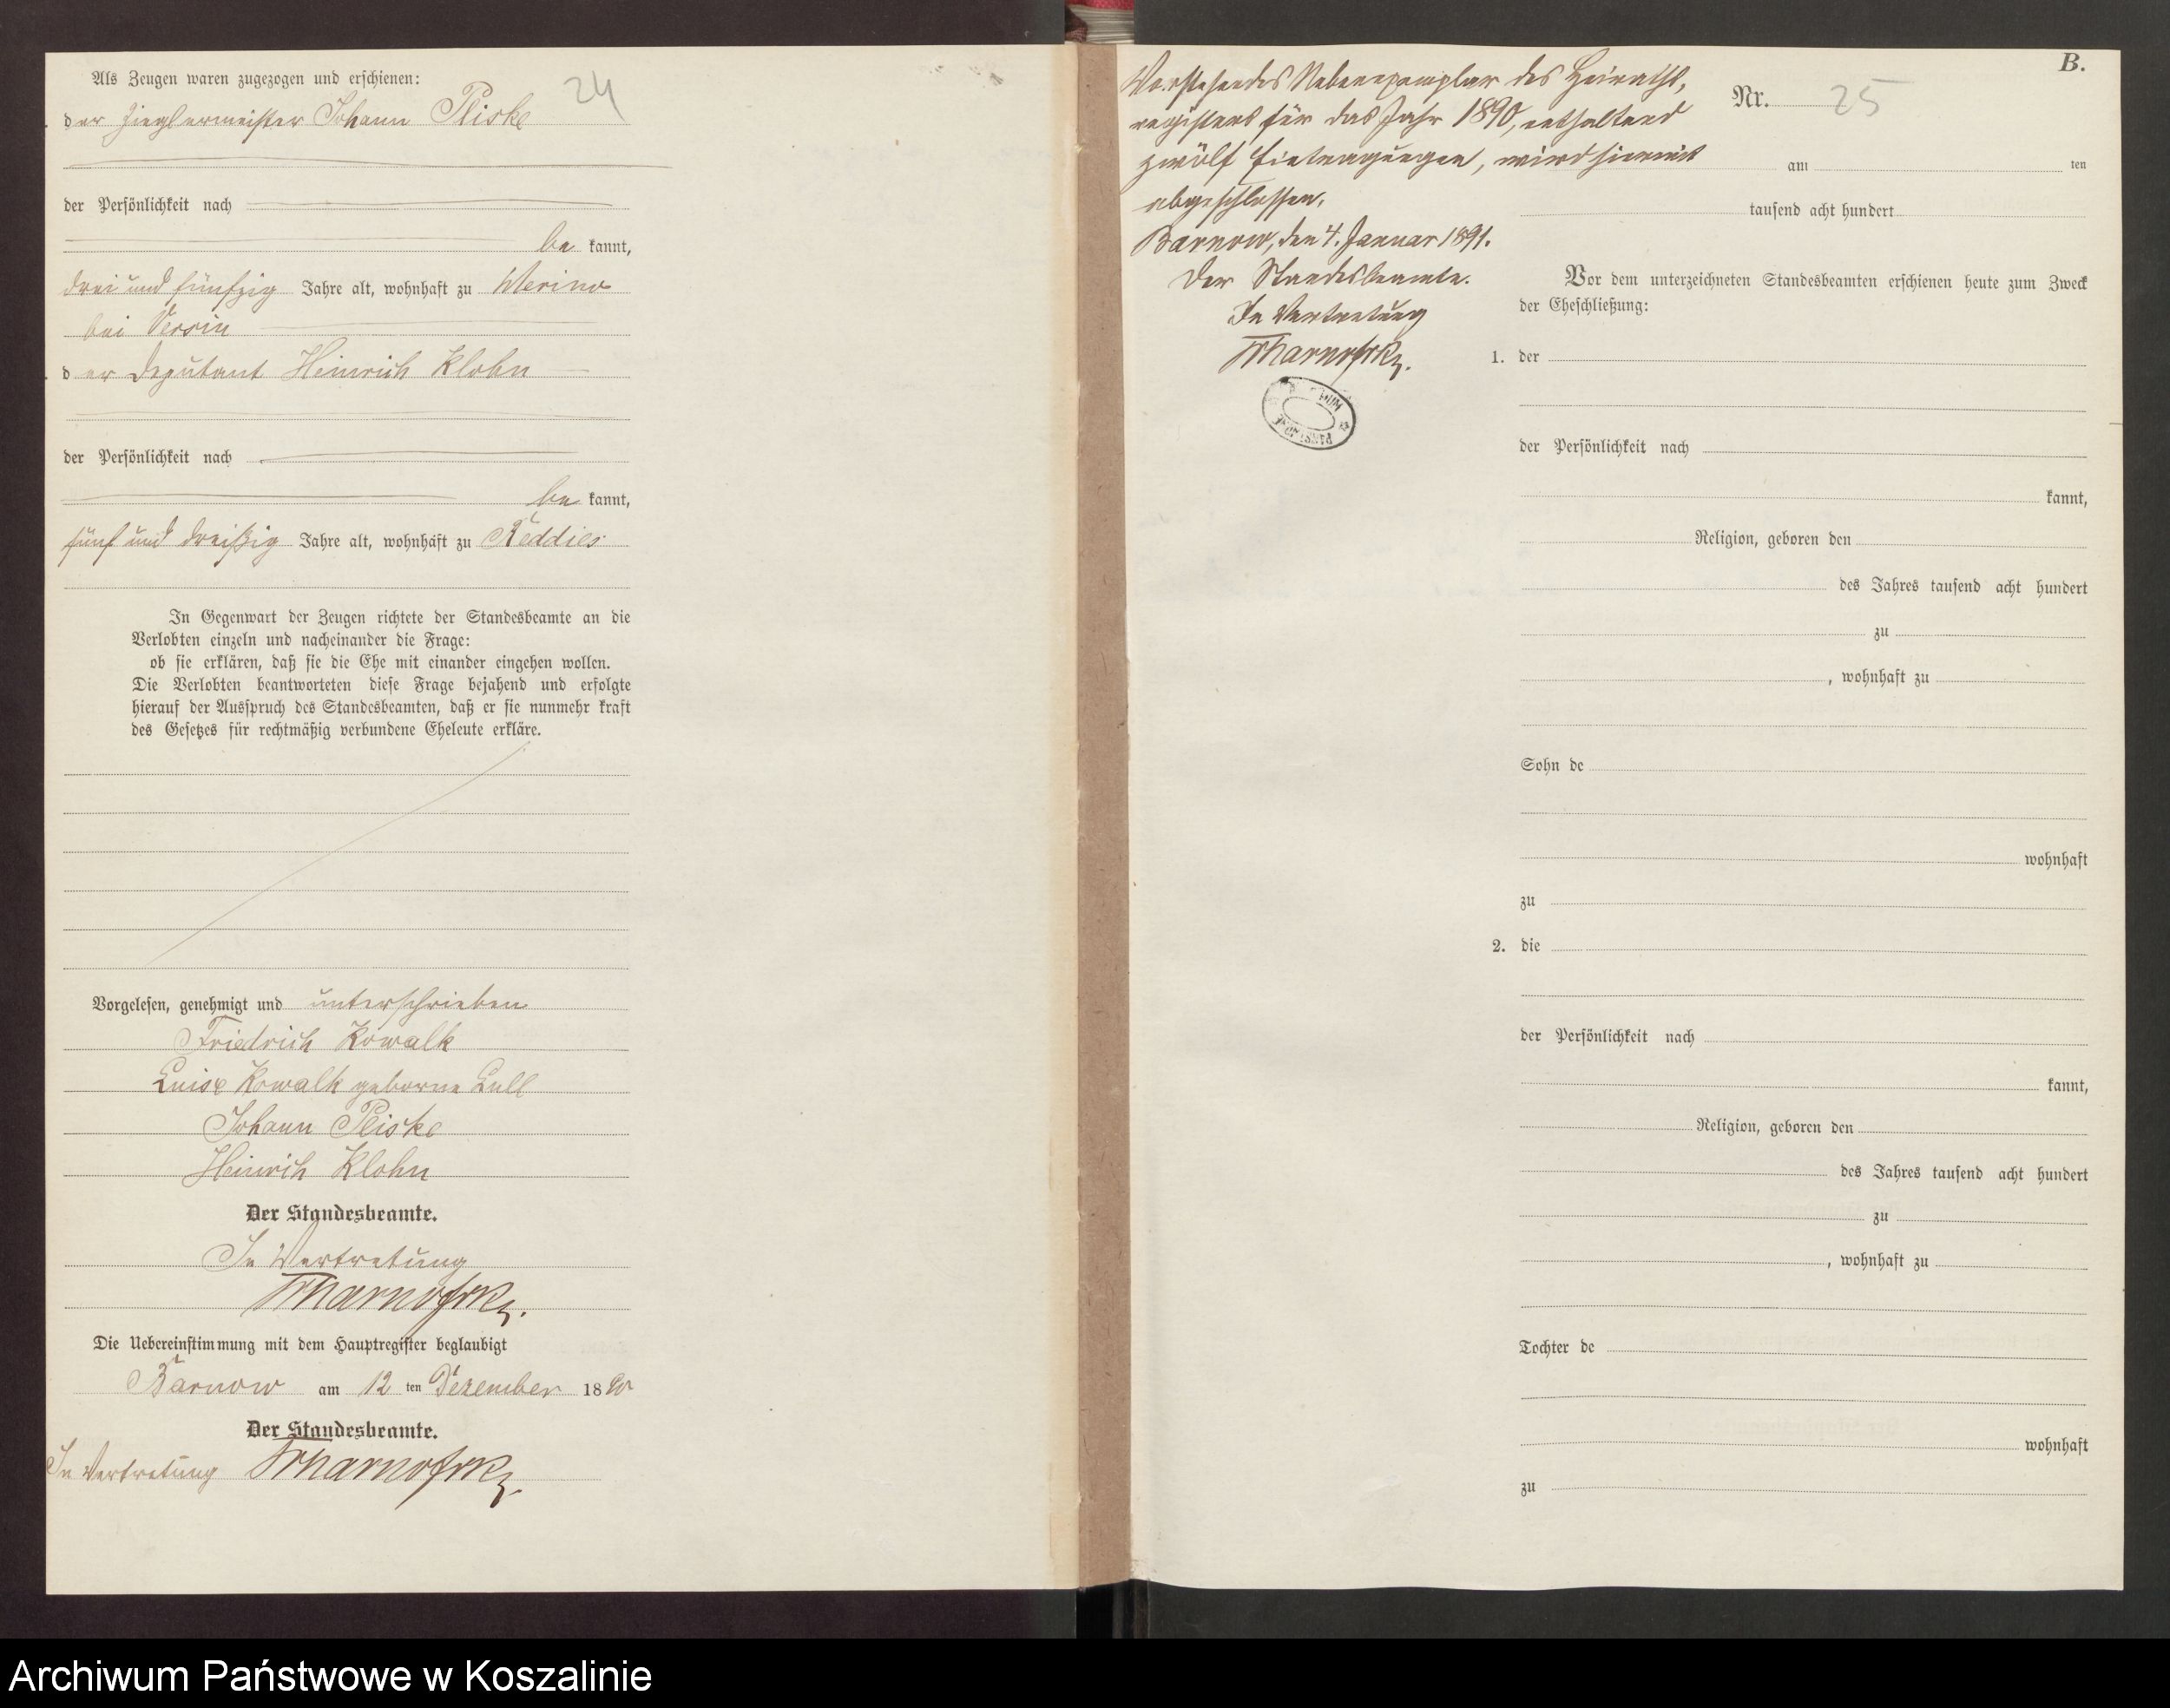 24
Als Zeugen waren zugezogen und erschienen:
der Zieglermeister Johann Pliske
der Persönlichkeit nach
be kannt,
drei und fünfzig Jahre alt, wohnhaft zu Merino
bei Versin
der Deputant Heinrich Klohn
der Persönlichkeit nach
be kannt,
fünf und dreißig Jahre alt, wohnhaft zu Reddies
In Gegenwart der Zeugen richtete der Standesbeamte an die
Verlobten einzeln und nacheinander die Frage:
ob sie erklären, daß sie die Ehe mit einander eingehen wollen.
Die Verlobten beantworteten diese Frage bejahend und erfolgte
hierauf der Ausspruch des Standesbeamten, daß er sie nunmehr kraft
des Gesetzes für rechtmäßig verbundene Eheleute erkläre.
Vorgelesen, genehmigt und unterschrieben
Friedrich Kowalk
Luise Kowalk geborne Lull
Johann Pliske
Heinrich Klohn
Der Standesbeamte.
In Vertretung
Die Uebereinstimmung mit dem Hauptregister beglaubigt
Barnow am 12 ten Dezember 1890
Der Standesbeamte.
In Vertretung
Vorstehendes Nebenexemplar des Heiraths-
registers für das Jahr 1890, enthaltend
zwölf Eintragungen, wird hiermit
abgeschlossen.
Barnow, den 4. Januar 1891.
Der Standesbeamte.
In Vertretung
B.
Nr. 25
am ten
tausend acht hundert
Vor dem unterzeichneten Standesbeamten erschienen heute zum Zweck
der Eheschließung:
1. der
der Persönlichkeit nach
kannt,
Religion, geboren den
des Jahres tausend acht hundert
zu
, wohnhaft zu
Sohn de
wohnhaft
zu
2. die
der Persönlichkeit nach
kannt,
Religion, geboren den
des Jahres tausend acht hundert
zu
, wohnhaft zu
Tochter de
wohnhaft
zu
Archiwum Państwowe w Koszalinie